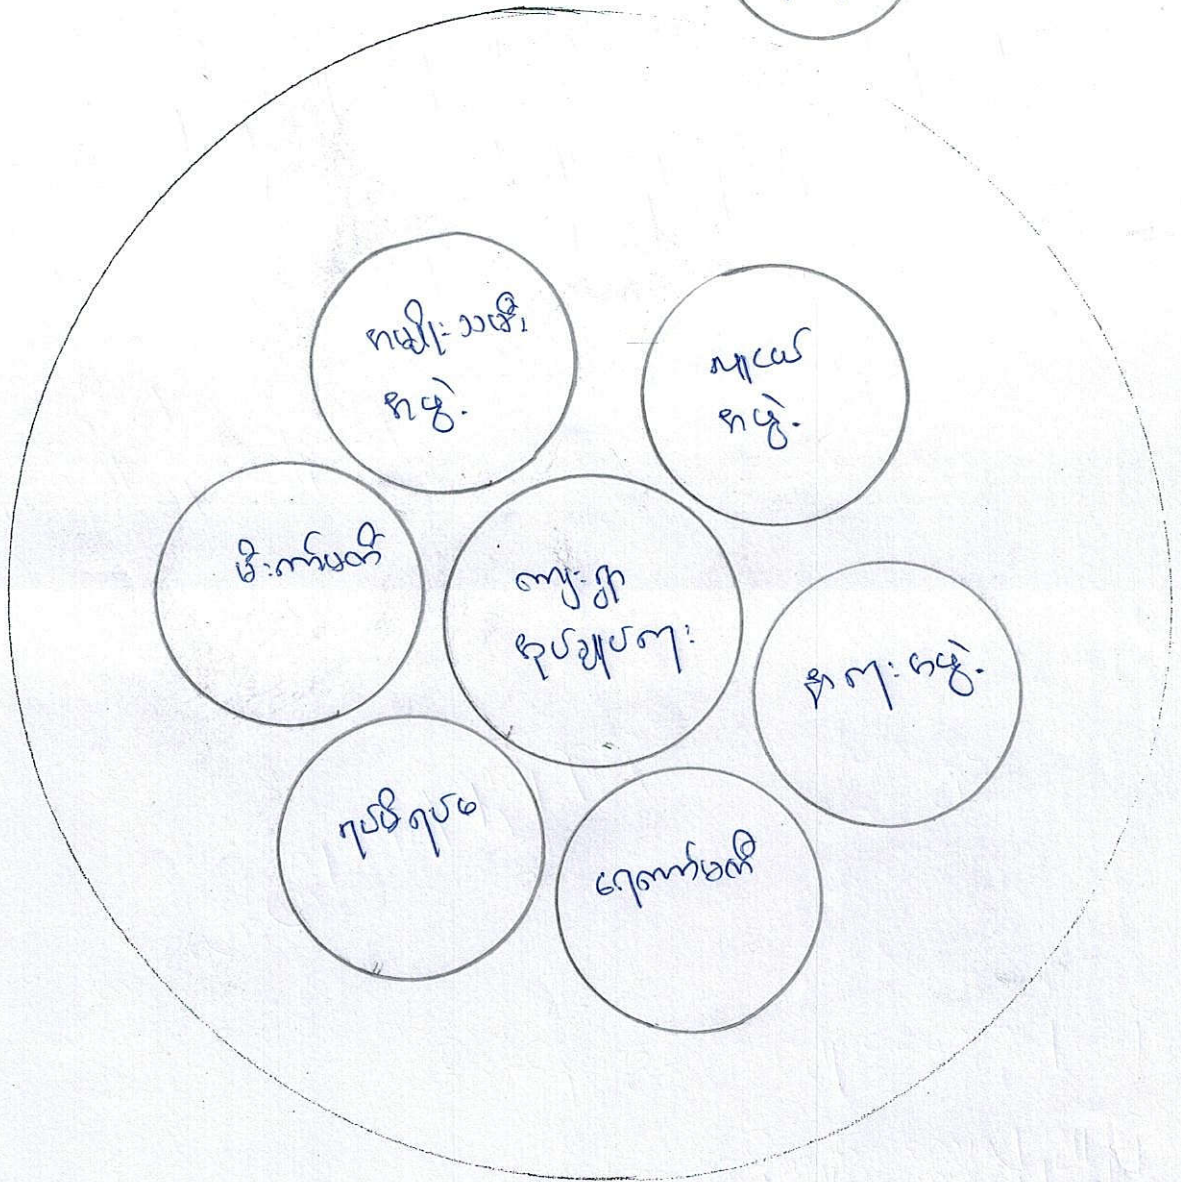 အမျိုးသမီး
အဖွဲ့
လူငယ်
အဖွဲ့
မီးကော်မတီ
ကျေးရွာ
အုပ်ချုပ်ရေး
နာရေးအဖွဲ့
ရပ်မိရပ်ဖ
ရေကော်မတီ